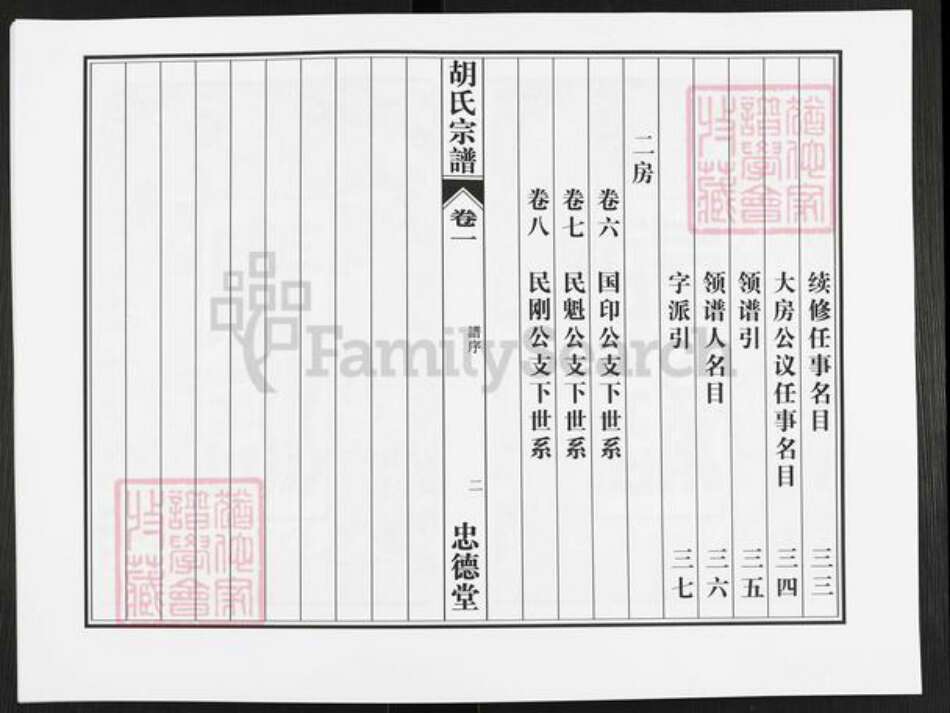 续修任事名目 三三
大房公议任事名目 三四
领谱引 三五
领谱人名目 三六
字派引 三七
二房
卷六 国印公支下世系
卷七 民魁公支下世系
卷八 民刚公支下世系
胡氏宗譜
卷一
譜序
二
忠德堂
FamilySearch